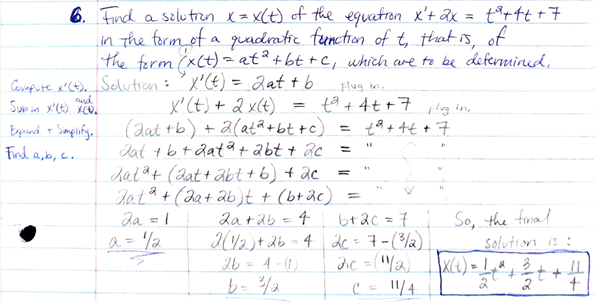 6. Find a solution x = x(t) of the equation x' + 2x = t² + 4t + 7
in the form of a quadratic function of t, that is, of
the form x(t) = at² + bt + c, which are to be determined.
Compute x'(t). Solution : x'(t) = 2at + b plug in.
Sub in x'(t) and x(t). x'(t) + 2x(t) = t² + 4t + 7 plug in.
Expand + Simplify. (2at + b) + 2(at² + bt + c) = t² + 4t + 7
Find a, b, c. 2at + b + 2at² + 2bt + 2c = " "
2at² + (2at + 2bt + b) + 2c = " "
2at² + (2a + 2b)t + (b + 2c) = " "
2a = 1 2a + 2b = 4 b + 2c = 7 So, the final
a = 1/2 2(1/2) + 2b = 4 2c = 7 - (3/2) solution is :
2b = 4 - (1) 2c = (11/2) x(t) = 1/2 t² + 3/2 t + 11/4
b = 3/2 c = 11/4